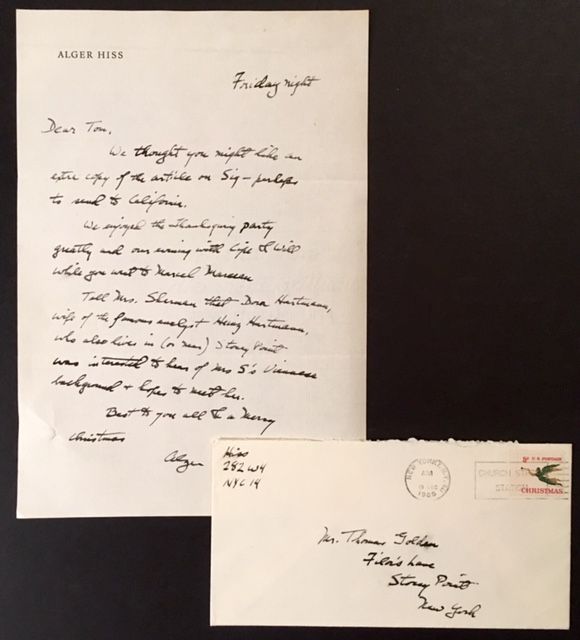 ALGER HISS
Friday night
Dear Tom,
We thought you might like an
extra copy of the article on Sig – perhaps
to send to California.
We enjoyed the Thanksgiving party
greatly and our evening with Lipe & Will
while you went to Marcel Marceau
Tell Mrs. Sherman that Dora Hartmann,
wife of the famous analyst Heinz Hartmann,
who also lives in (or near) Stony Point
was interested to hear of Mrs S's Viennese
background & hopes to meet her.
Best to you all & a Merry
Christmas
Alger
Hiss
282 W4
NYC 14
NEW YORK, N.Y.
AM
DEC
CHURCH ST.
STATION
5c U.S. POSTAGE
CHRISTMAS
Mr. Thomas Golden
Filor's Lane
Stony Point
New York